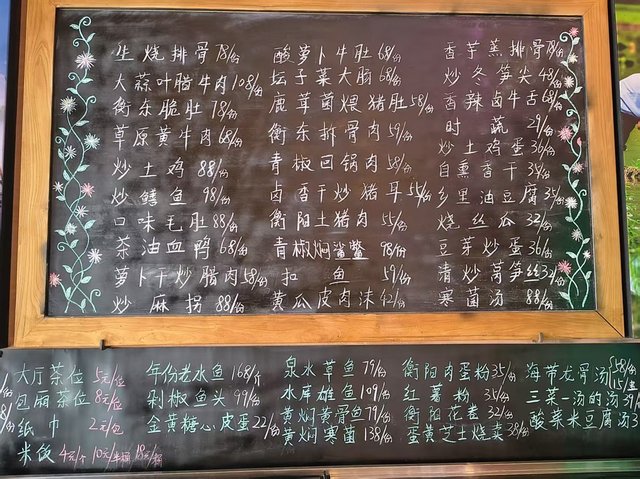 生烧排骨78/份 酸萝卜牛肚68/份 香芋蒸排骨78/份
大蒜叶腊牛肉108/份 坛子菜大肠68/份 炒冬笋尖48/份
衡东脆肚78/份 鹿茸菌煨猪肚58/份 香辣卤牛舌68/份
草原黄牛肉68/份 衡东拆骨肉59/份 时蔬29/份
炒土鸡88/份 青椒回锅肉58/份 炒土鸡蛋36/份
炒鳝鱼98/份 卤香干炒猪耳55/份 自熏香干39/份
口味毛肚88/份 衡阳土猪肉55/份 乡里油豆腐35/份
茶油血鸭68/份 青椒焖鲨鳖98/份 烧丝瓜32/份
萝卜干炒腊肉58/份 扣鱼59/份 豆芽炒蛋36/份
炒麻拐88/份 黄瓜皮肉沫42/份 清炒莴笋丝32/份
寒菌汤88/份
大厅茶位5元/位 年份老水鱼168/个 泉水草鱼79/份 衡阳肉蛋粉35/份 海带龙骨汤58/份 15/
包厢茶位8元/位 剁椒鱼头99/份 水库雄鱼109/份 红薯粉35/份 三菜一汤的汤39/
纸巾2元/包 金黄糖心皮蛋22/份 黄焖黄骨鱼79/份 衡阳花卷32/份 酸菜米豆腐汤3
米饭4元/个 10元/半桶 18元/桶 黄焖寒菌138/份 蛋黄芝士烧卖38/份